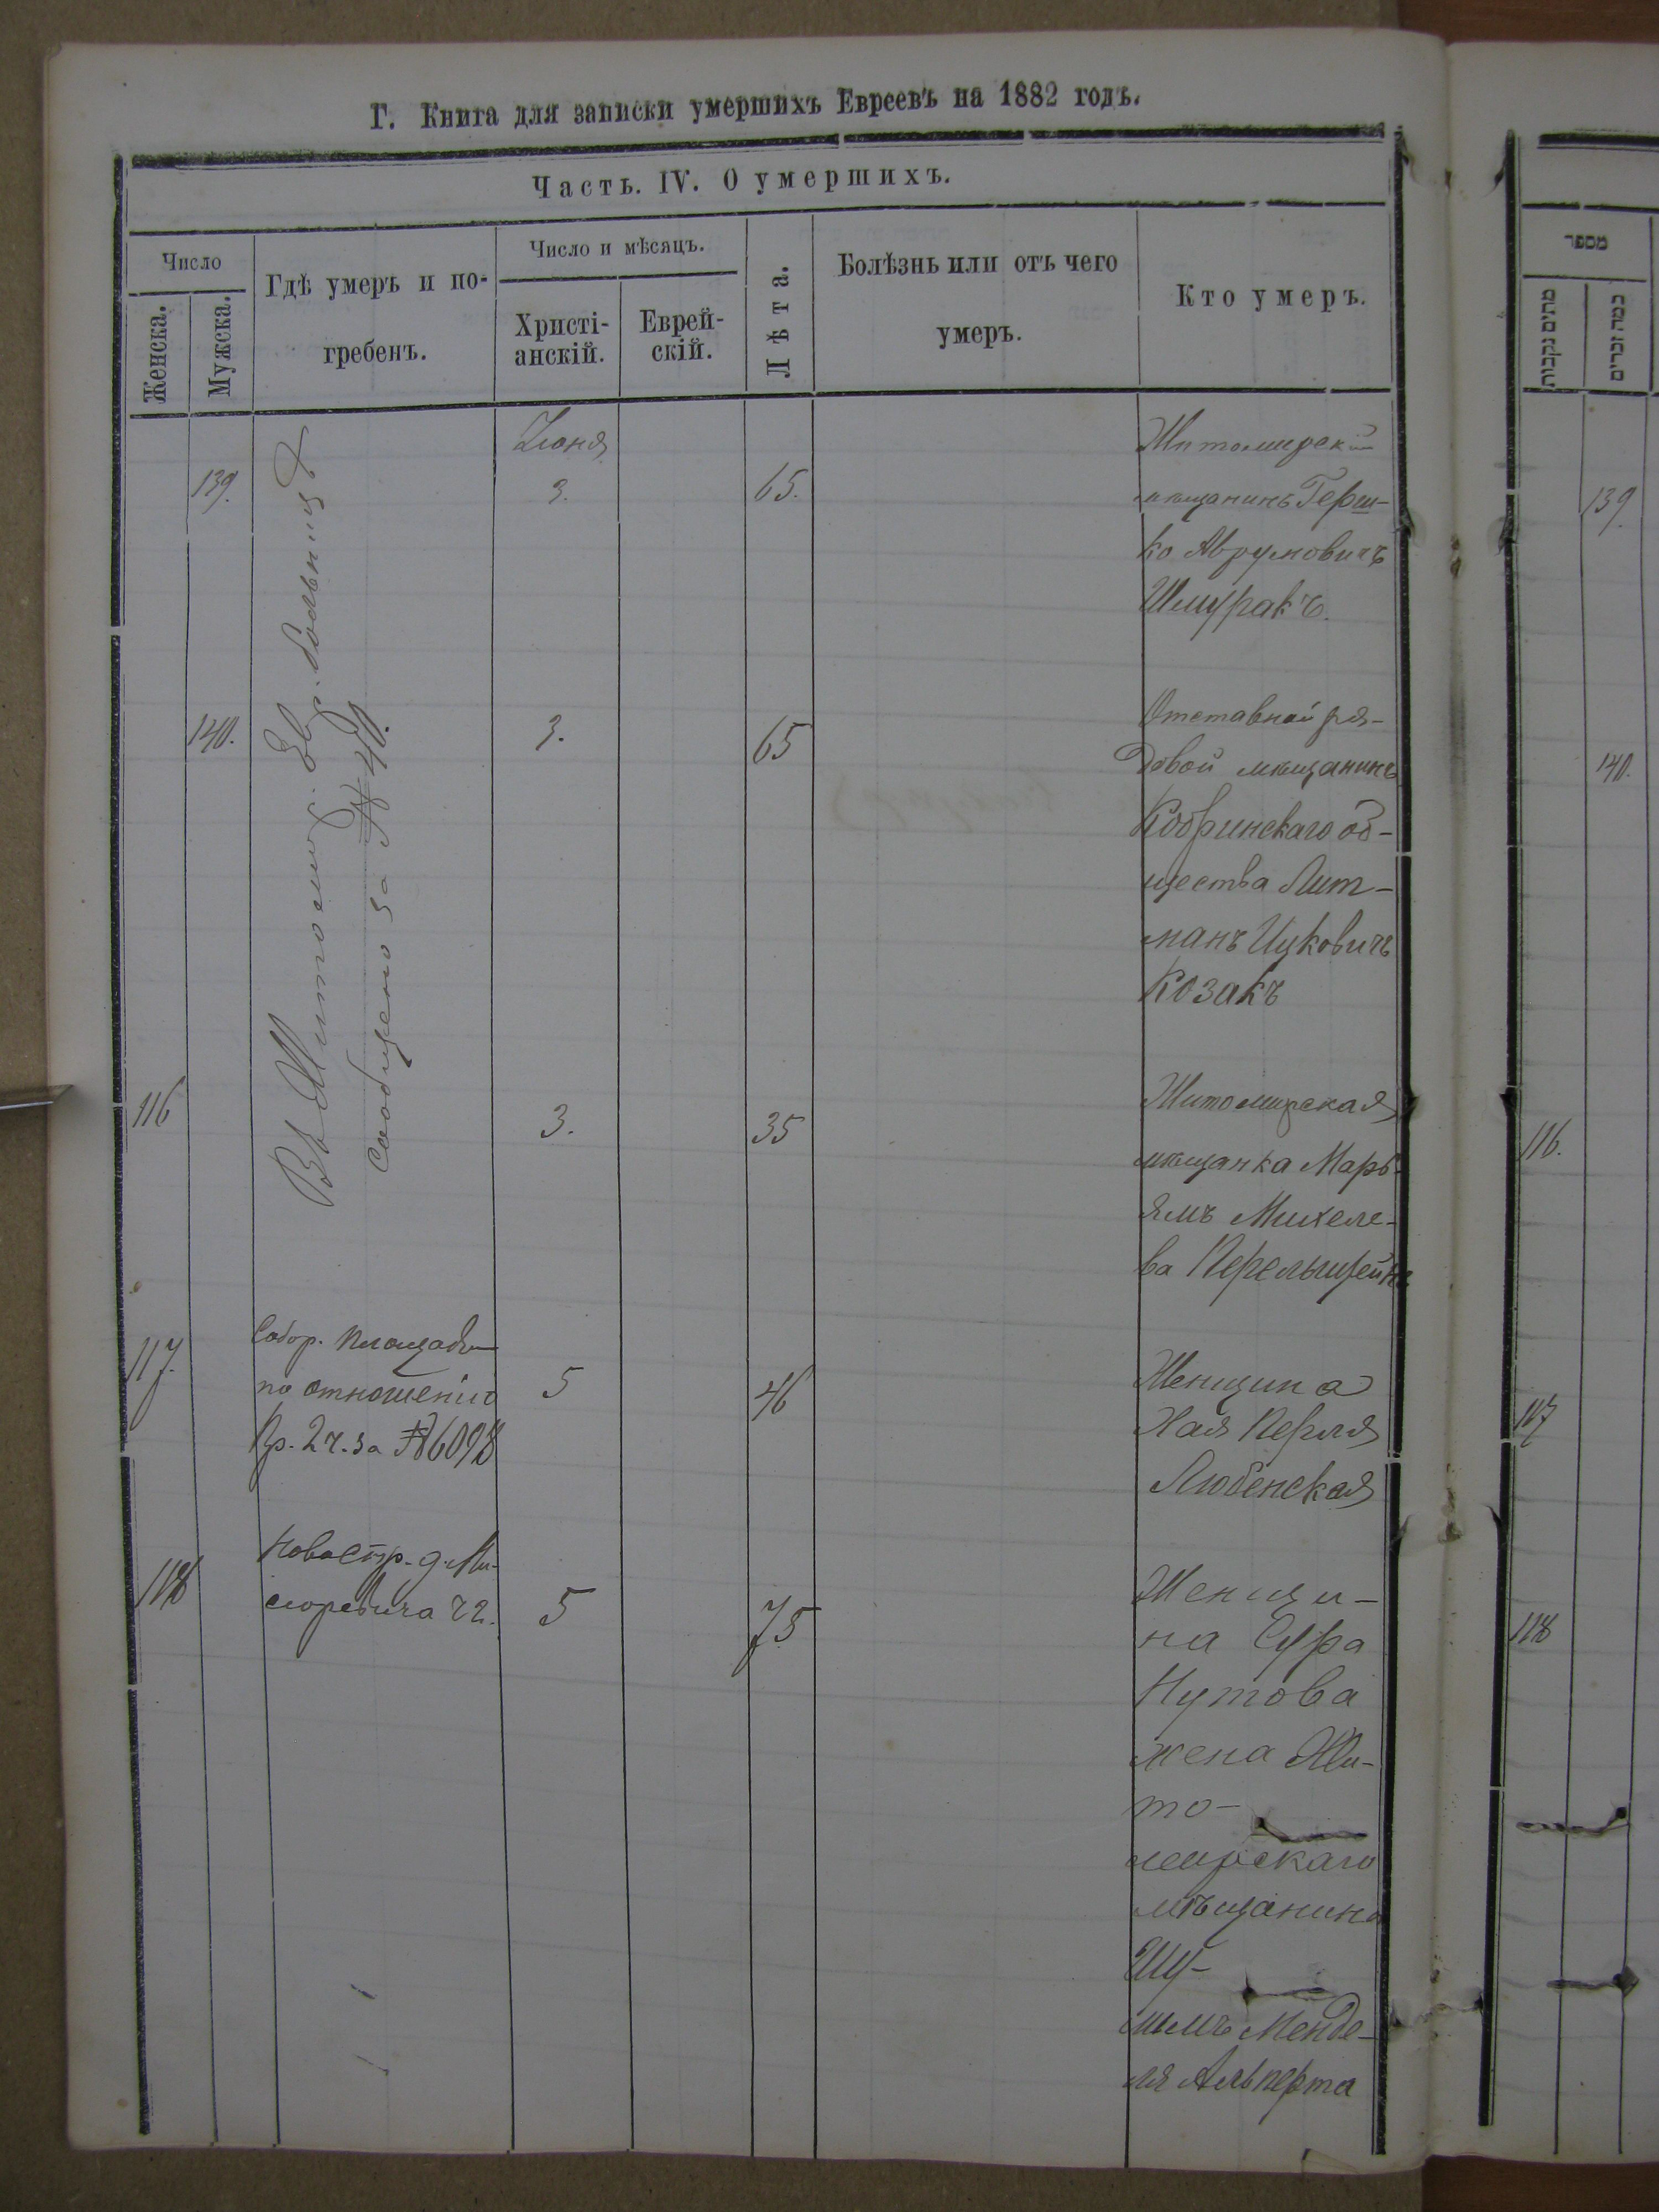 Г. Книга для записки умершихъ Евреевъ на 1882 годъ.
Часть. IV. О умершихъ.
Число
Женска.
Мужска.
Гдѣ умеръ и по-
гребенъ.
Число и мѣсяцъ.
Христі-
анскій.
Еврей-
скій.
Лѣта.
Болѣзнь или отъ чего
умеръ.
Кто умеръ.
139.
Въ Житомир. Евр. больницѣ
сообщено за № 40.
Іюня
3.
65.
Житомирскій
мѣщанинъ Герш-
ко Аврумовичъ
Шмуракъ.
140.
3.
65
Отставной ря-
довой мѣщанинъ
Кобринскаго об-
щества Лит-
манъ Ицковичъ
Козакъ
116
3.
35
Житомирская
мѣщанка Марь-
ямъ Михеле-
ва Перельштейнъ
117.
Собор. площадь
по отношенію
Пр. 2 ч. за № 6098
5
46
Женщина
Хая Перля
Любенская
118
Новостр. д. Ми-
5
75
Женщи-
на Сура
Нутова
жена Жи-
то-
мирскаго
мѣщанина
Шу-
лимъ Менде-
ля Альперта
מספר
מתים נקבות
כמה זכרים
139.
140.
116.
117
118